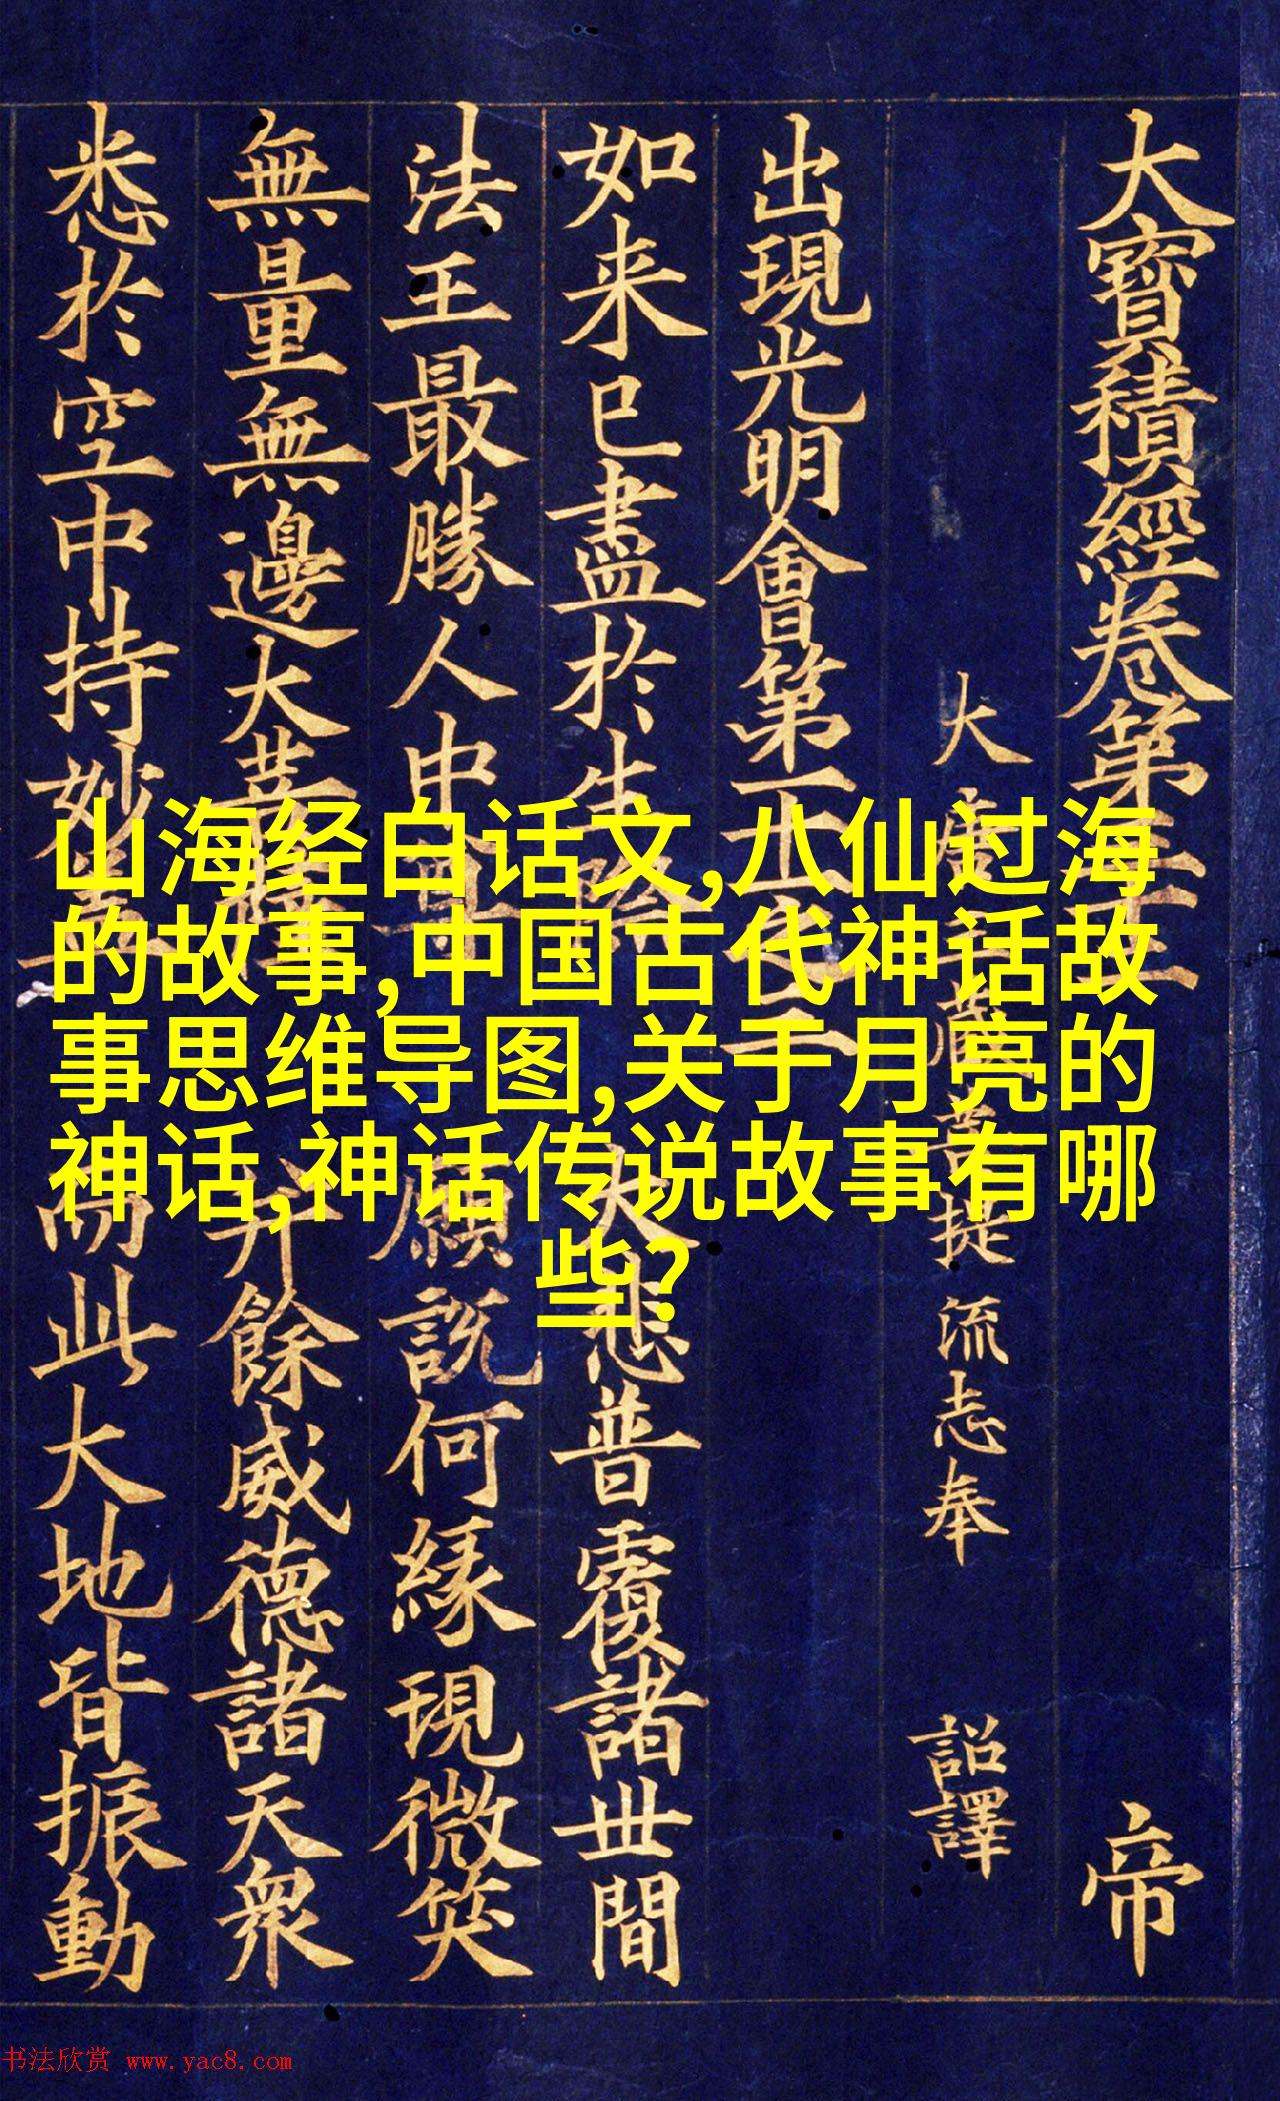 大寶積經卷第 帝
大唐三藏菩提流志奉 詔譯
出現光明會第十一之二
如来已盡於生際 大悲普覆諸世間
法王最勝人中尊 願說何緣現微笑
無量無邊大菩薩 并餘威德諸天衆
悉於空中持妙 而此大地皆振動
山海经白话文,八仙过海
的故事,中国古代神话故
事思维导图,关于月亮的
神话,神话传说故事有哪
些?
书法欣赏 www.yac8.com